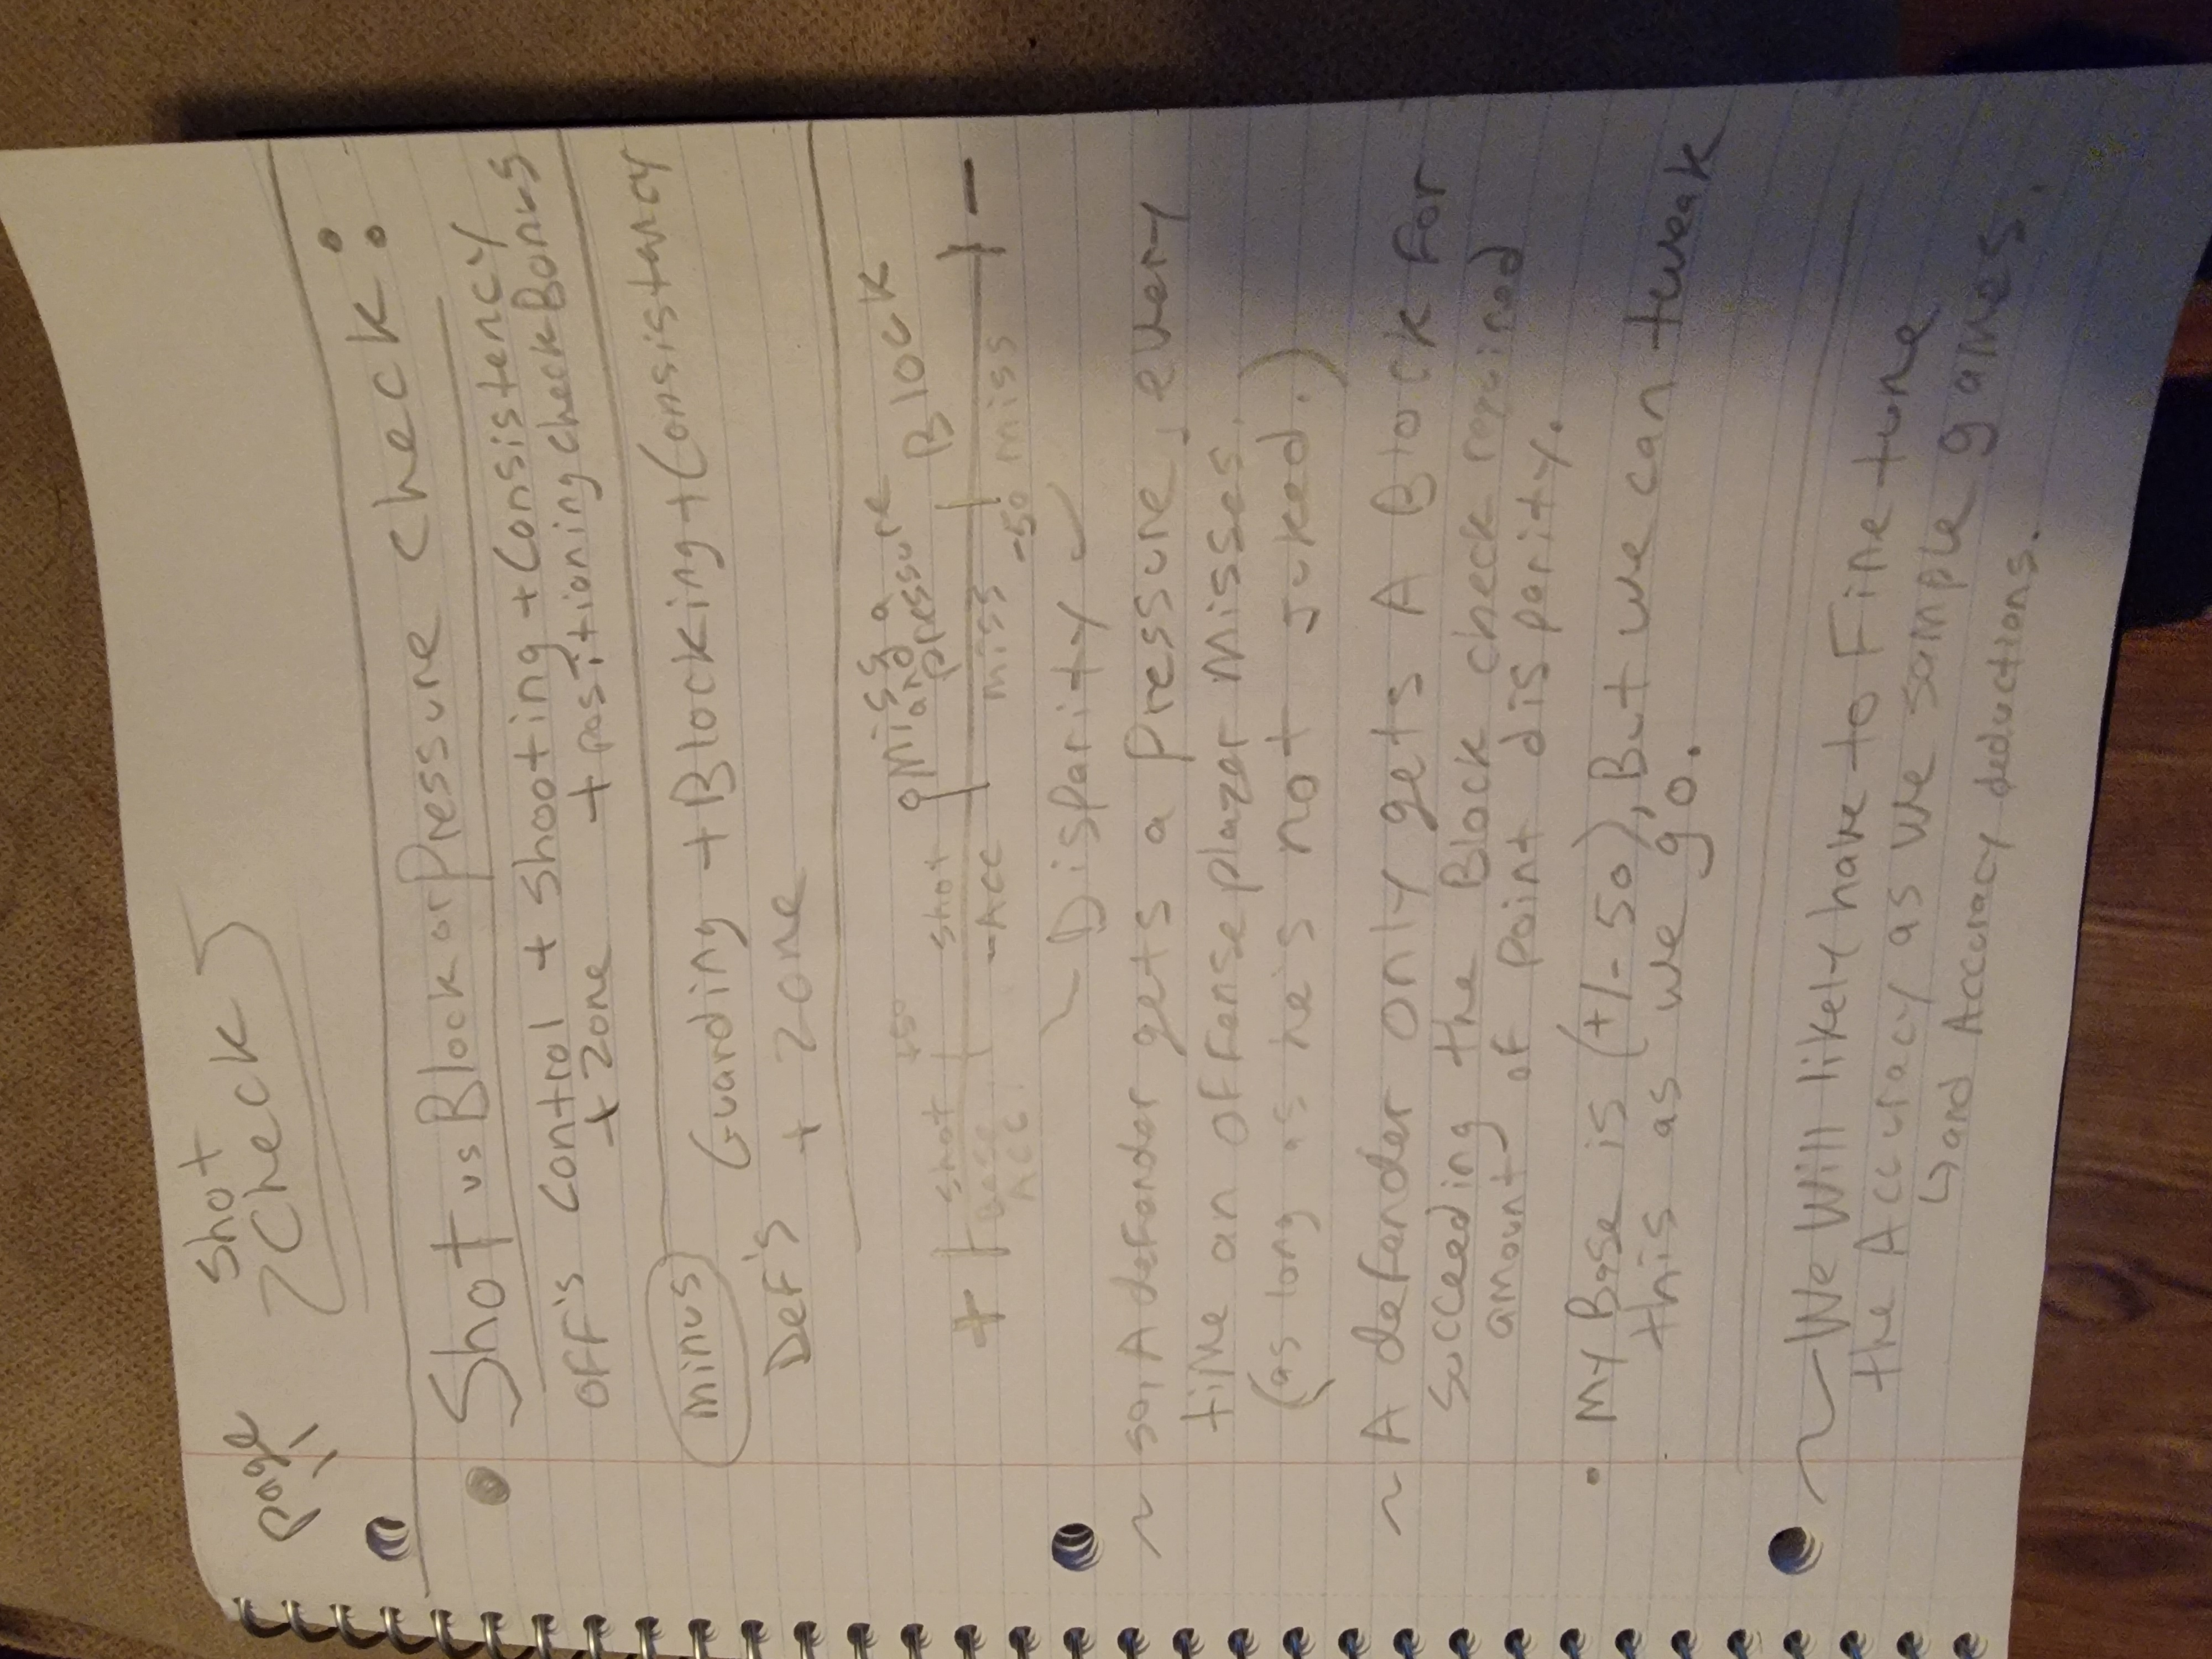 page
11
Shot
Check
Shot vs Block or Pressure check:
OFF's Control + Shooting + Consistency
+ Zone + positioning check Bonus
minus
Guarding + Blocking + Consistency
DeF's + Zone
+ shot +50 shot 0 Miss and a pressure Block -
Base Acc. -Acc miss -50 miss
Disparity
~ so, A defender gets a Pressure, every
time an offense player Misses.
(as long as he's not juked.)
~ A defender only gets A Block For
succeeding the Block check required
amount of point disparity.
• My Base is (+/- 50), But we can tweak
this as we go.
~ We Will likely have to Fine tune
the Accuracy as we sample games.
↳ and Accuracy deductions.